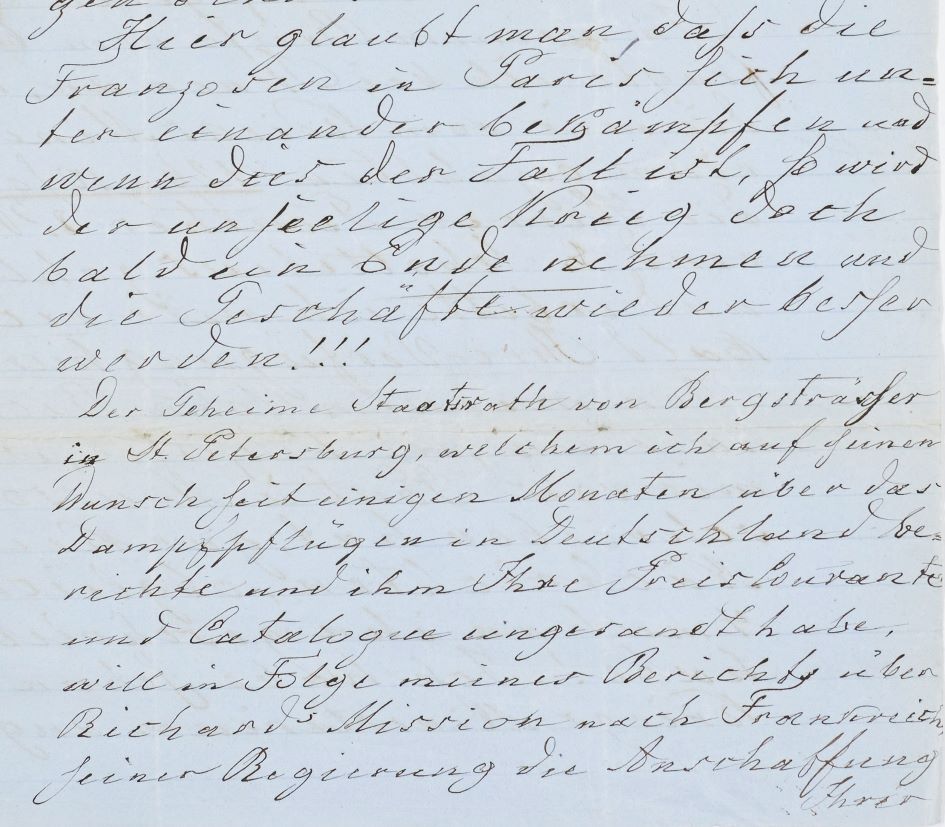 Hier glaubt man, daß die
Franzosen in Paris sich un=
ter einander bekämpfen und
wenn dies der Fall ist, so wird
der unseelige Krieg doch
bald ein Ende nehmen und
die Geschäfte wieder besser
werden!!!
Der Geheime Staatsrath von Bergsträsser
in St. Petersburg, welchem ich auf seinen
Wunsch seit einigen Monaten über das
Dampfpflügen in Deutschland be=
richte und ihm Ihre Preis Courante
und Cataloque eingesandt habe,
will in Folge meiner Berichte über
Richards Mission nach Frankreich,
seiner Regierung die Anschaffung
Ihrer